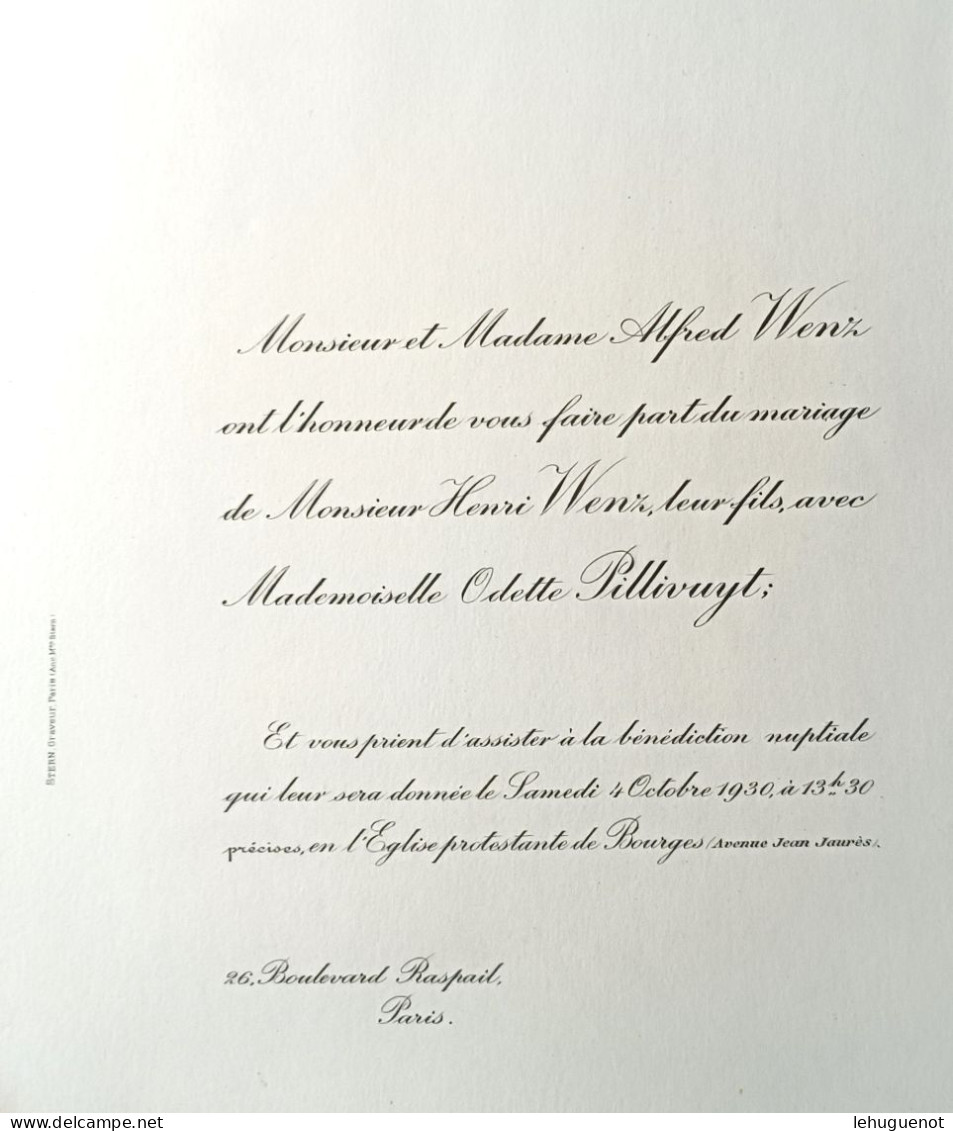 Monsieur et Madame Alfred Wenz
ont l'honneur de vous faire part du mariage
de Monsieur Henri Wenz, leur fils, avec
Mademoiselle Odette Pillivuyt;
Et vous prient d'assister à la bénédiction nuptiale
qui leur sera donnée le Samedi 4 Octobre 1930, à 13h 30
précises, en l'Eglise protestante de Bourges (Avenue Jean Jaurès).
26, Boulevard Raspail,
Paris.
STERN Graveur, Paris (Anc. Mon Stern)
delcampe.net
lehuguenot